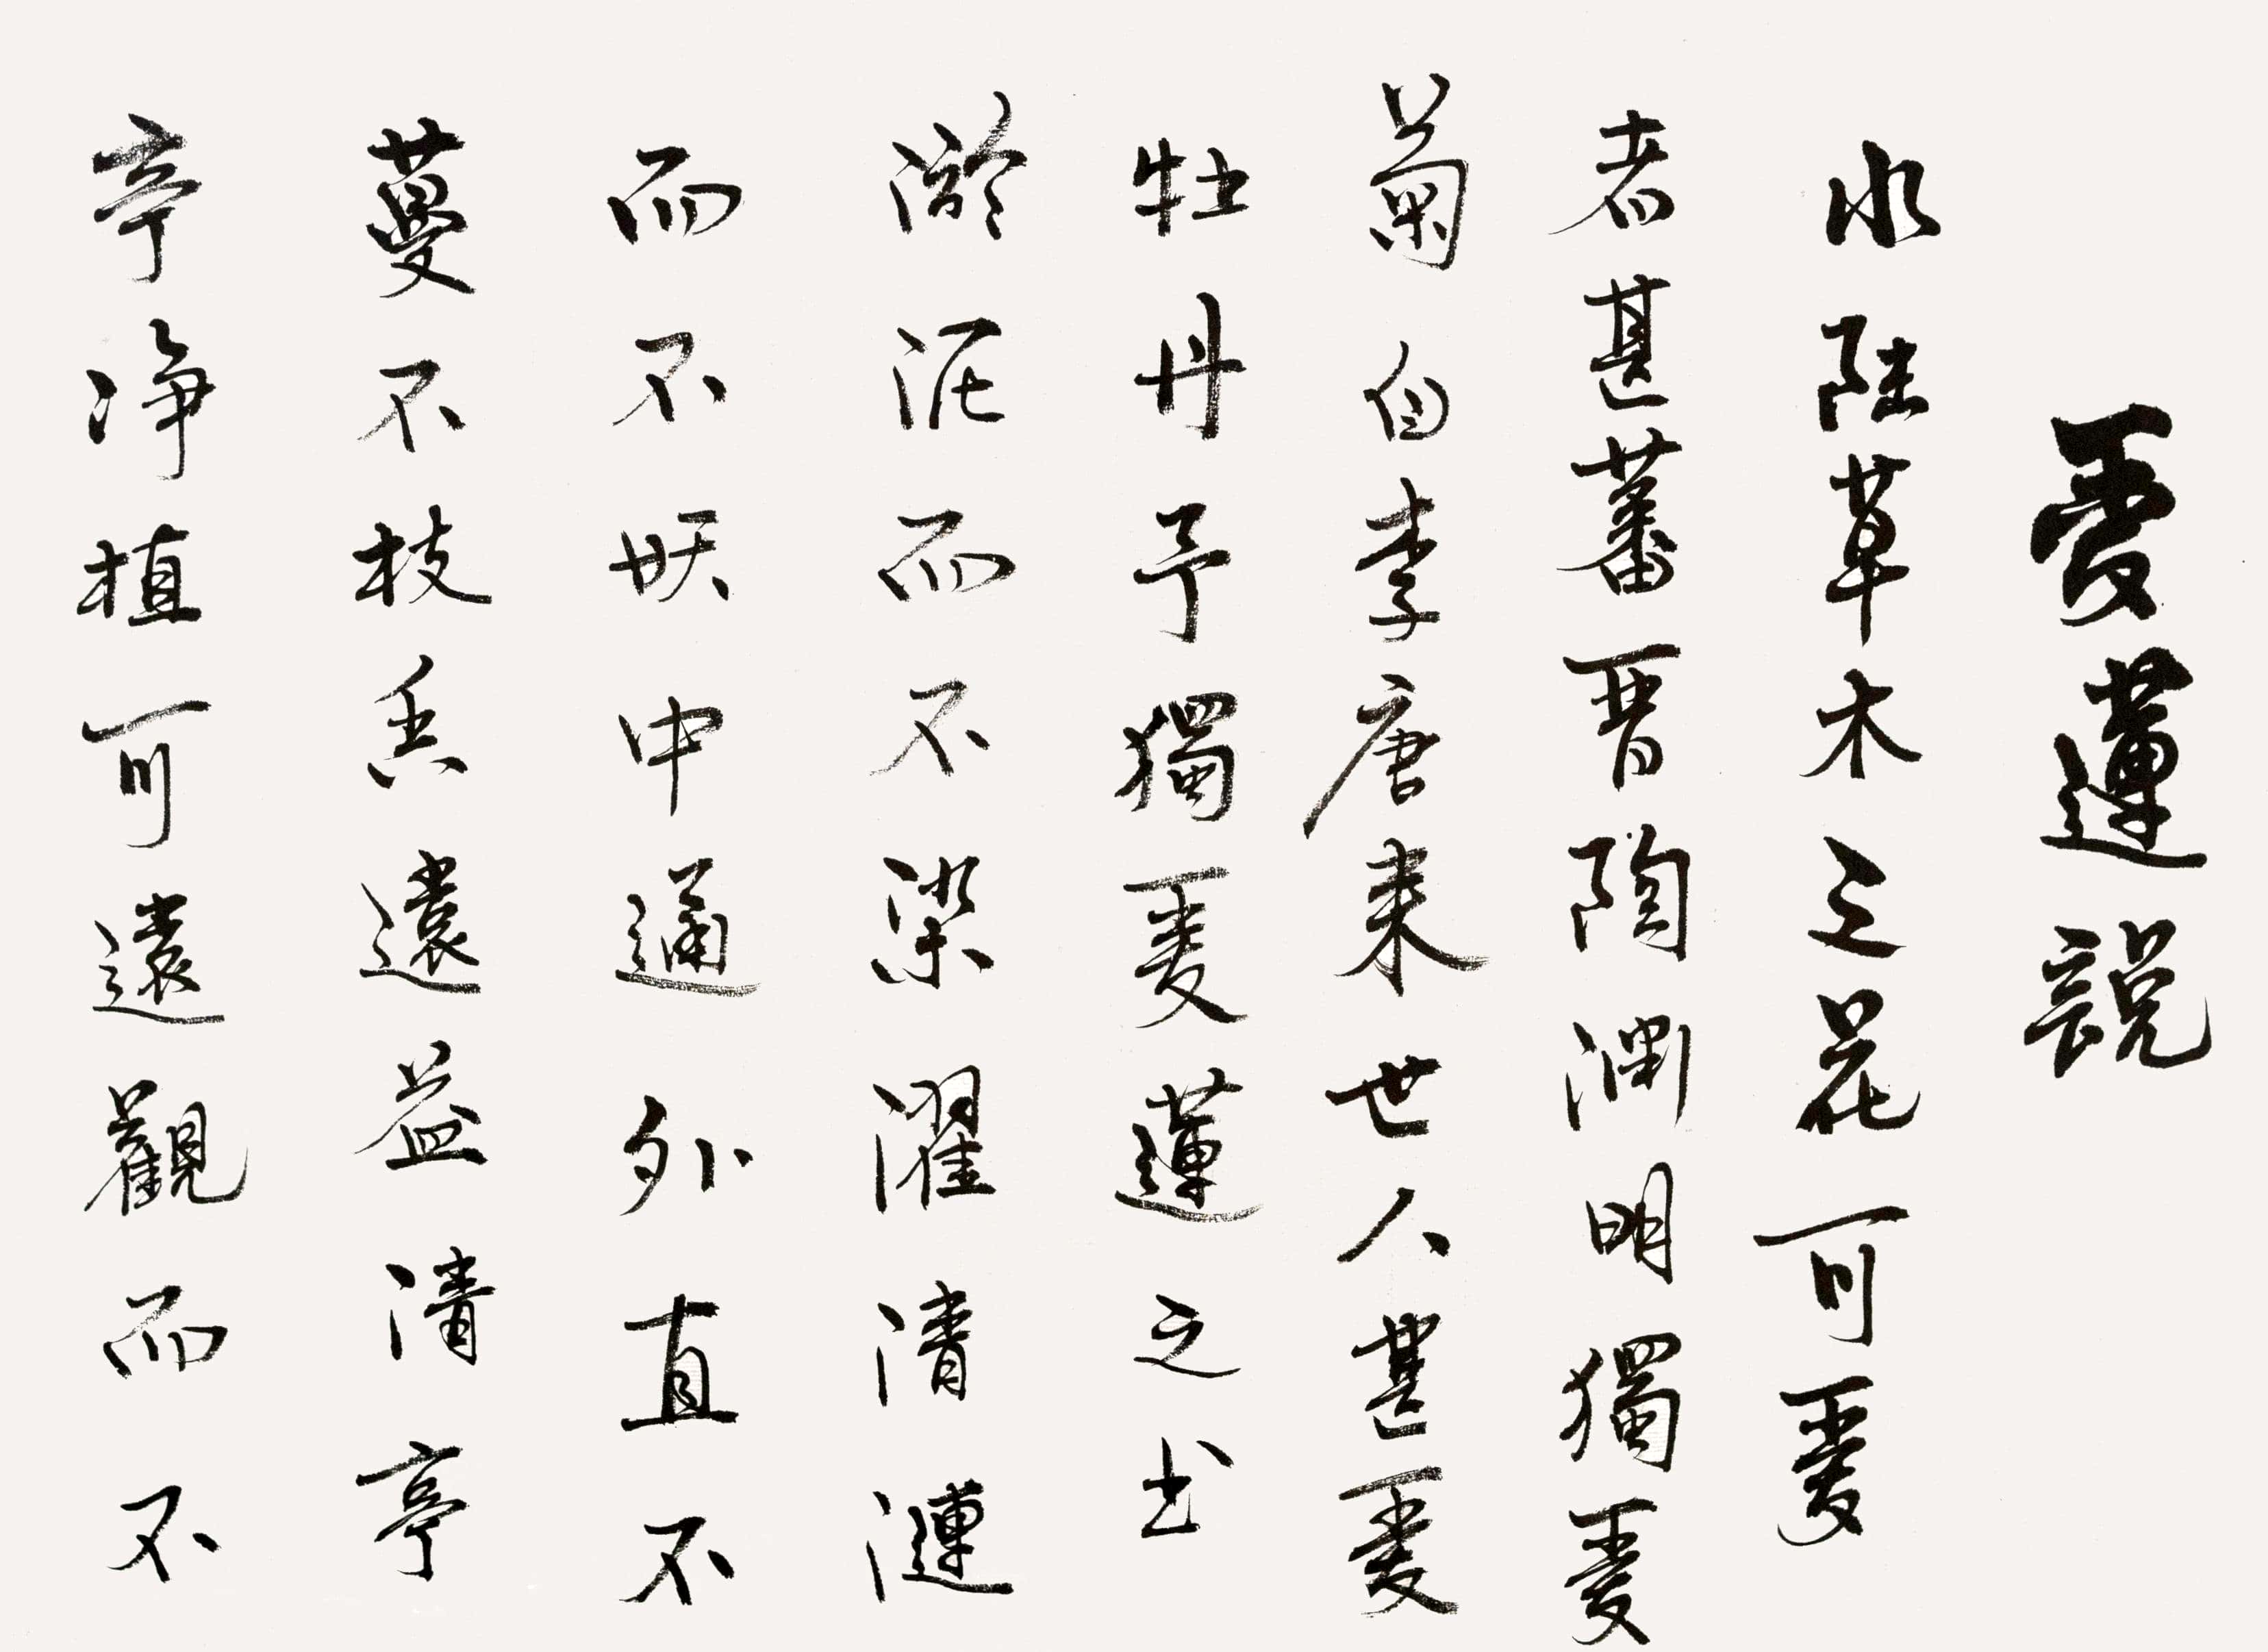 愛蓮説
水陸草木之花可愛
者甚蕃晉陶淵明獨愛
菊自李唐來世人甚愛
牡丹予獨愛蓮之出
淤泥而不染濯清漣
而不妖中通外直不
蔓不枝香遠益清亭
亭净植可遠觀而不